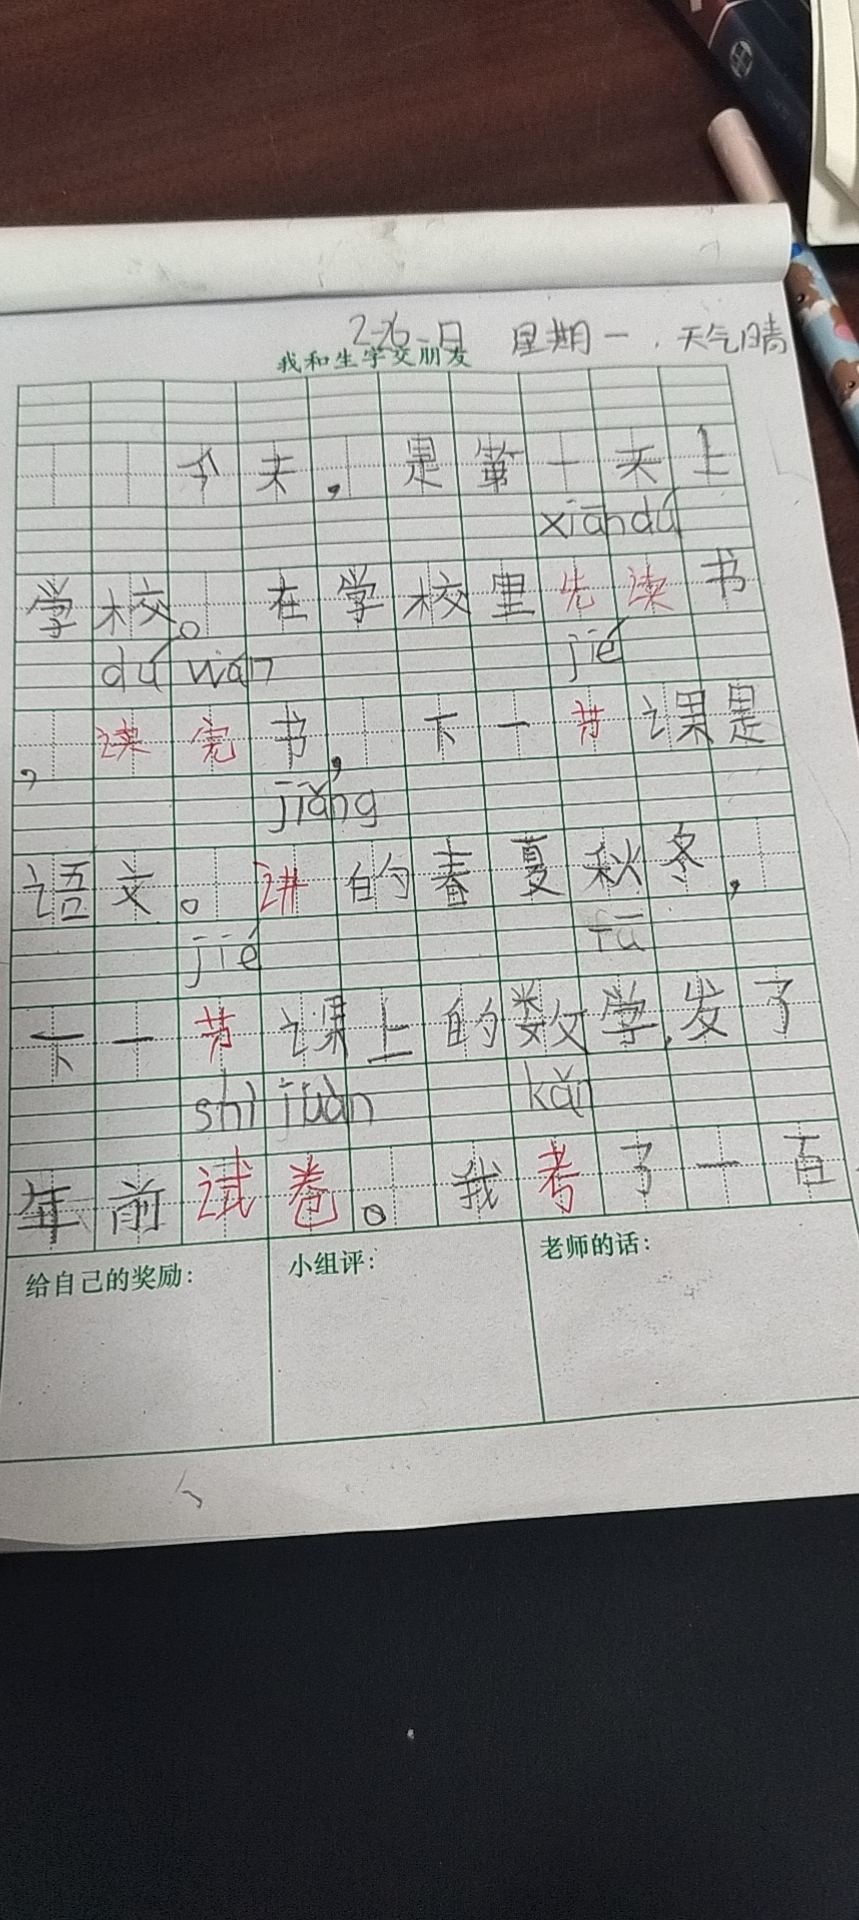 2-26-日 星期一，天气晴
我和生字交朋友
今天，是第一天上
xiān dú
学校。在学校里先读书
dú wán jié
，读完书，下一节课是
jiǎng
语文。讲的春夏秋冬，
jié fā
下一节课上的数学，发了
shì juàn kǎn
年前试卷。我考了一百
给自己的奖励：
小组评：
老师的话：